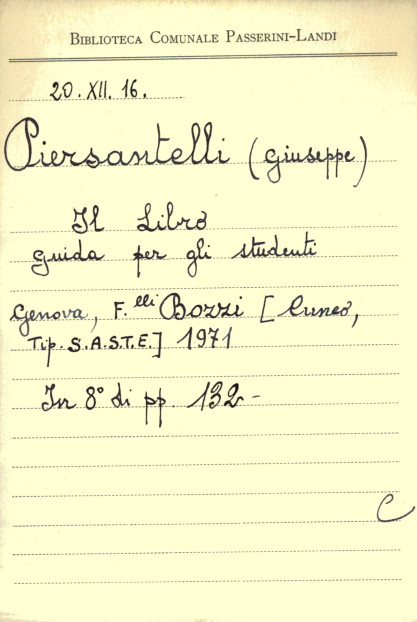 BIBLIOTECA COMUNALE PASSERINI-LANDI
20. XII. 16.
Piersantelli (Giuseppe)
Il Libro
Guida per gli studenti
Genova, F.lli Bozzi [Cuneo,
Tip. S.A.S.T.E.] 1971
In 8° di pp. 132 -
C